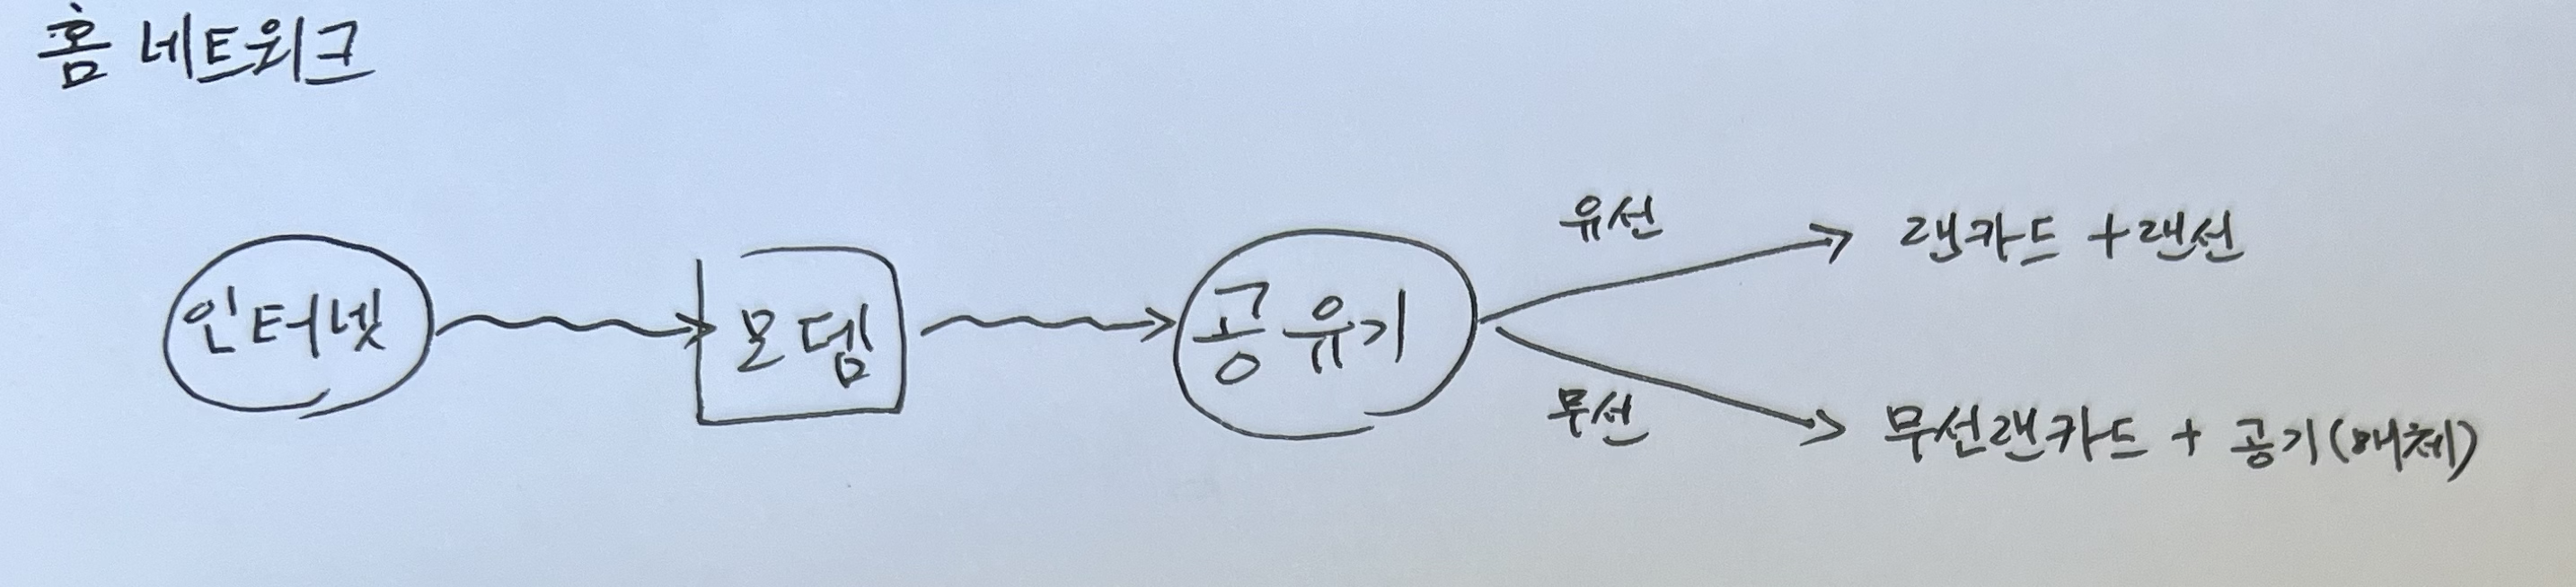 홈 네트워크
인터넷
모뎀
공유기
유선
랜카드 + 랜선
무선
무선랜카드 + 공기(매체)